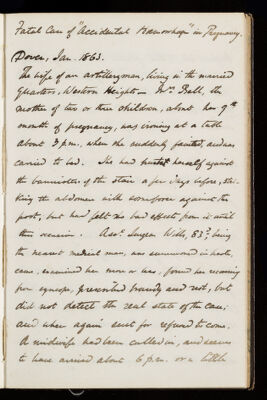 Fatal Case of "Accidental Hæmorrhage" in Pregnancy.
Dover, Jan. 1863.
The wife of an artilleryman, living in the married
Quarters, Western Heights — Mrs. Ball, the
mother of two or three children, about her 9th
month of pregnancy, was ironing at a table
about 3 p.m. when she suddenly fainted, and was
carried to bed. She had hurt herself against
the bannisters of the stair a few days before, stri-
king the abdomen with some force against the
post, but had felt no bad effect from it until
this occasion. Asst. Surgeon Wills, 83d, being
the nearest medical man, was summoned in haste,
came, examined her more or less, found her recovering
from syncope, prescribed brandy and rest, but
did not detect the real state of the case;
and when again sent for refused to come.
A midwife had been called in, and seems
to have arrived about 6 p.m. or a little